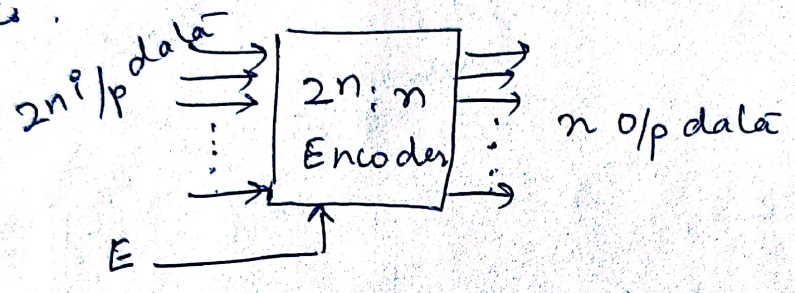 2n i/p data
2n : n
Encoder
n o/p data
E